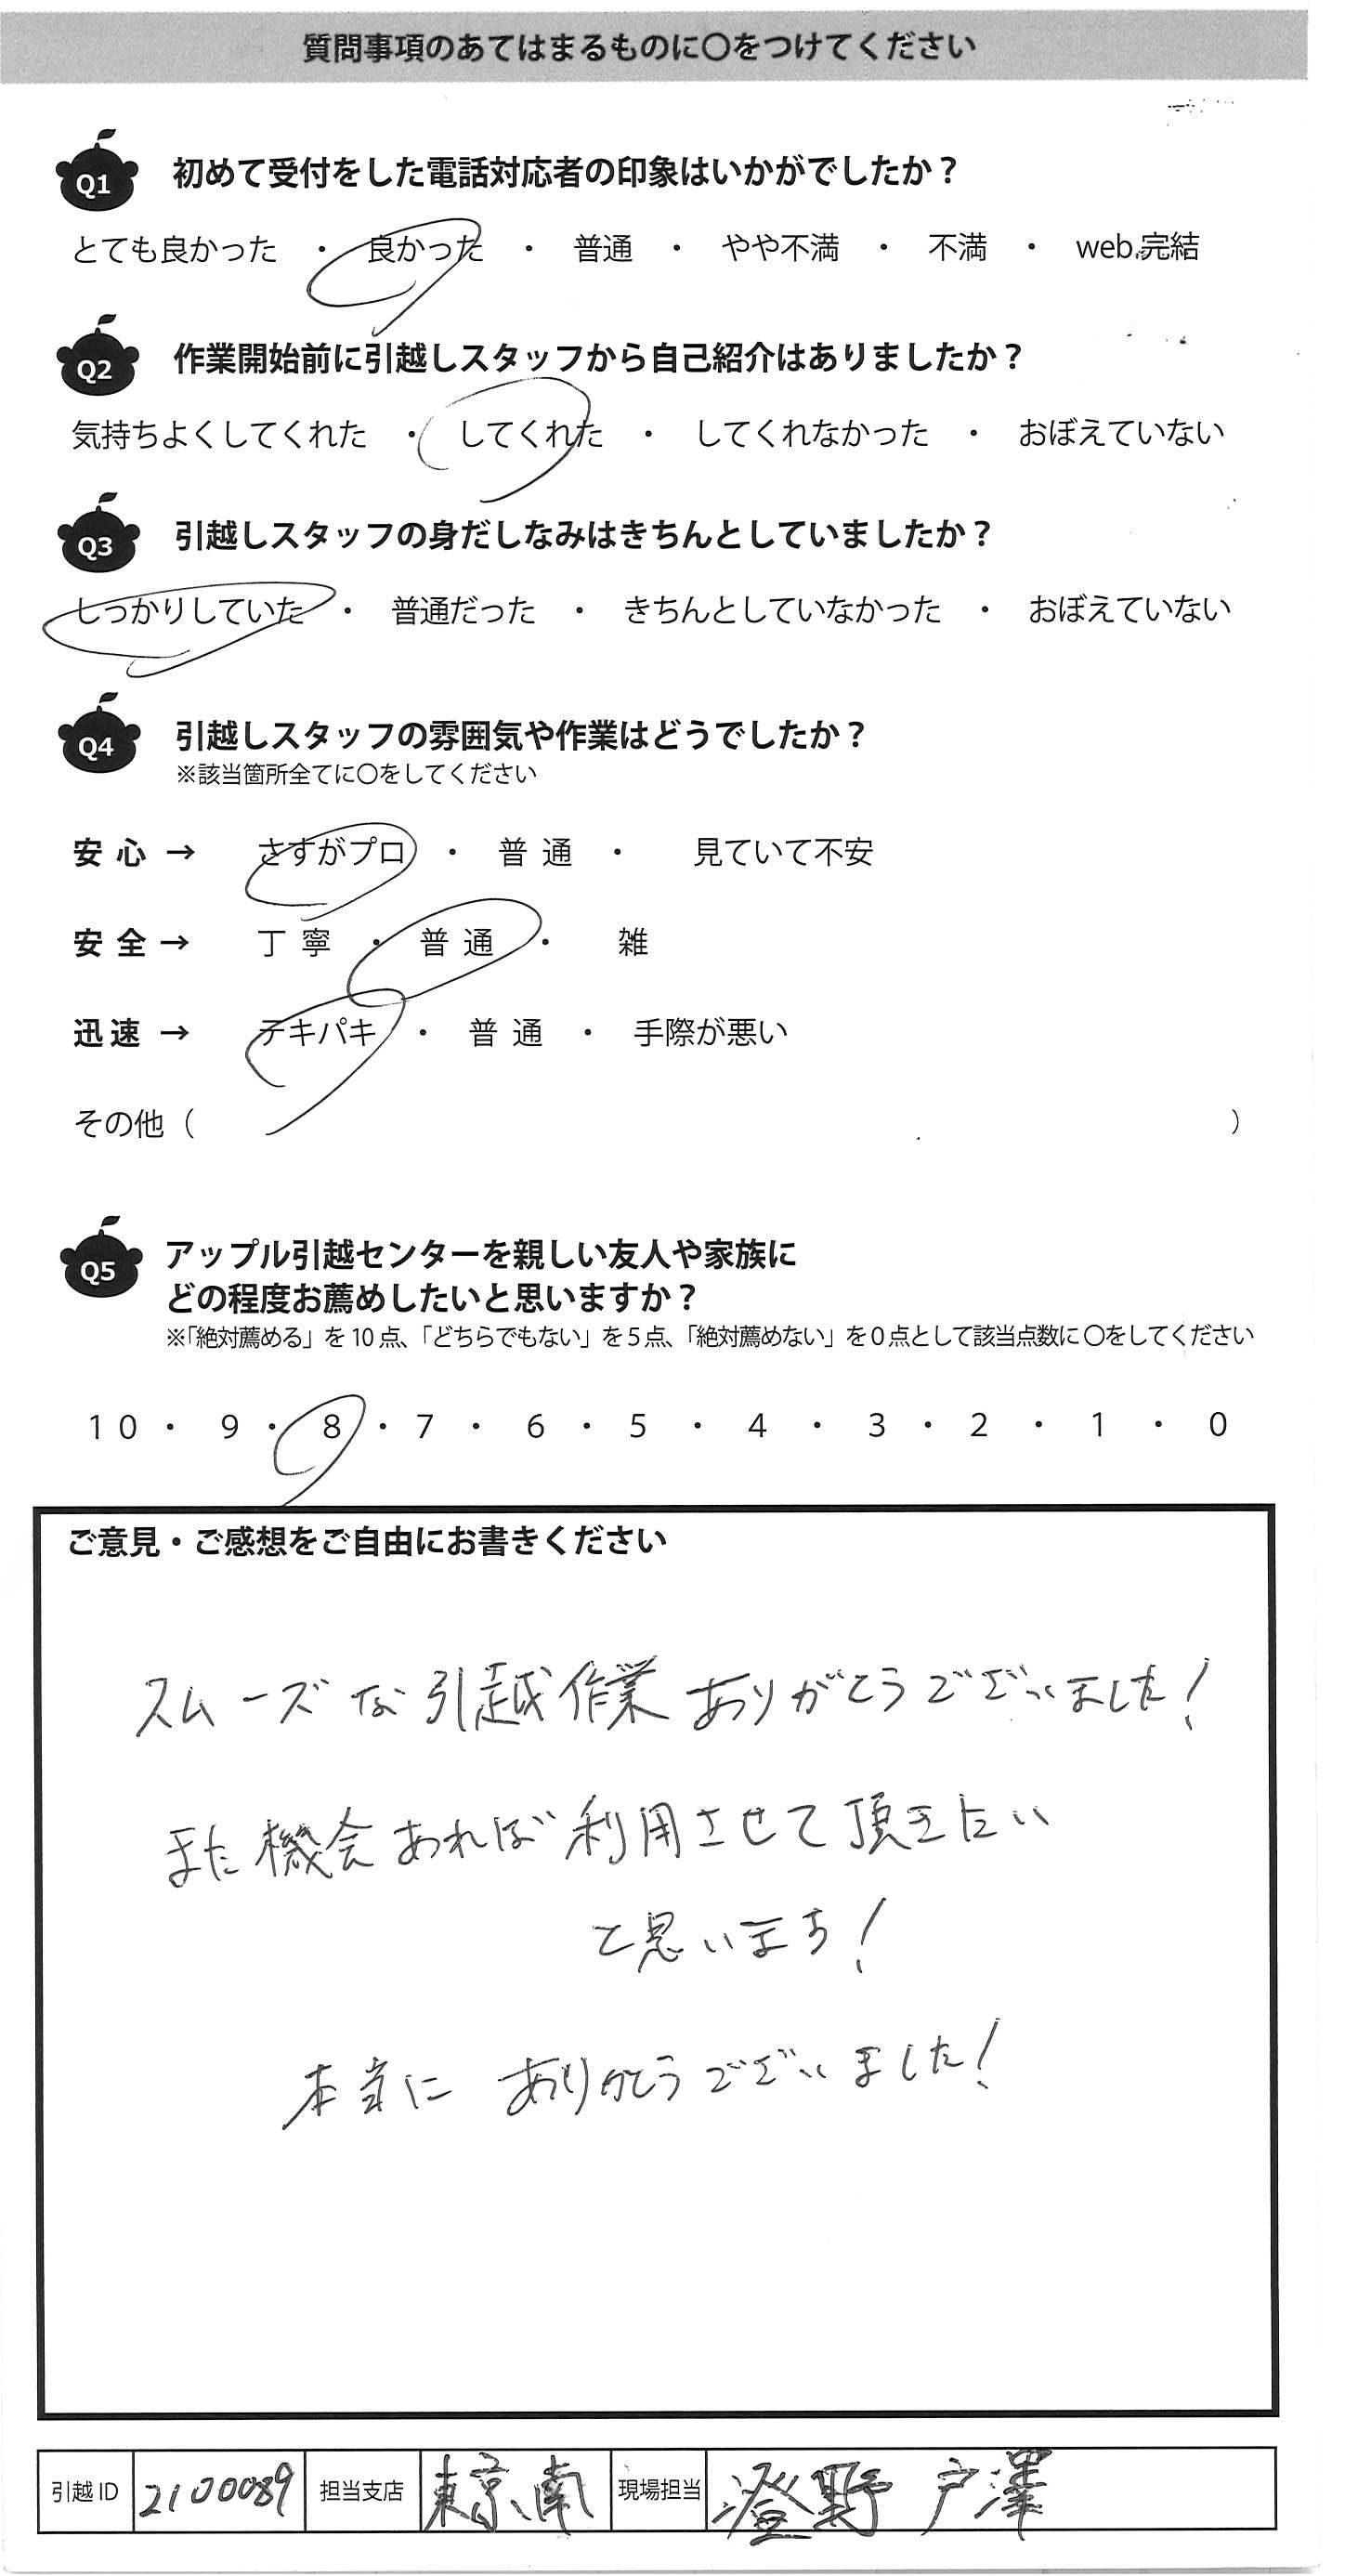 質問事項のあてはまるものに〇をつけてください
Q1 初めて受付をした電話対応者の印象はいかがでしたか？
とても良かった ・ 良かった ・ 普通 ・ やや不満 ・ 不満 ・ web完結
Q2 作業開始前に引越しスタッフから自己紹介はありましたか？
気持ちよくしてくれた ・ してくれた ・ してくれなかった ・ おぼえていない
Q3 引越しスタッフの身だしなみはきちんとしていましたか？
しっかりしていた ・ 普通だった ・ きちんとしていなかった ・ おぼえていない
Q4 引越しスタッフの雰囲気や作業はどうでしたか？
※該当箇所全てに〇をしてください
安心 → さすがプロ ・ 普通 ・ 見ていて不安
安全 → 丁寧 ・ 普通 ・ 雑
迅速 → テキパキ ・ 普通 ・ 手際が悪い
その他（ ）
Q5 アップル引越センターを親しい友人や家族に
どの程度お薦めしたいと思いますか？
※「絶対薦める」を10点、「どちらでもない」を5点、「絶対薦めない」を0点として該当点数に〇をしてください
10 ・ 9 ・ 8 ・ 7 ・ 6 ・ 5 ・ 4 ・ 3 ・ 2 ・ 1 ・ 0
ご意見・ご感想をご自由にお書きください
スムーズな引越作業ありがとうございました！
また機会あれば利用させて頂きたい
と思います！
本当に ありがとうございました！
引越ID 2100089 担当支店 東京南 現場担当 澄野 戸澤